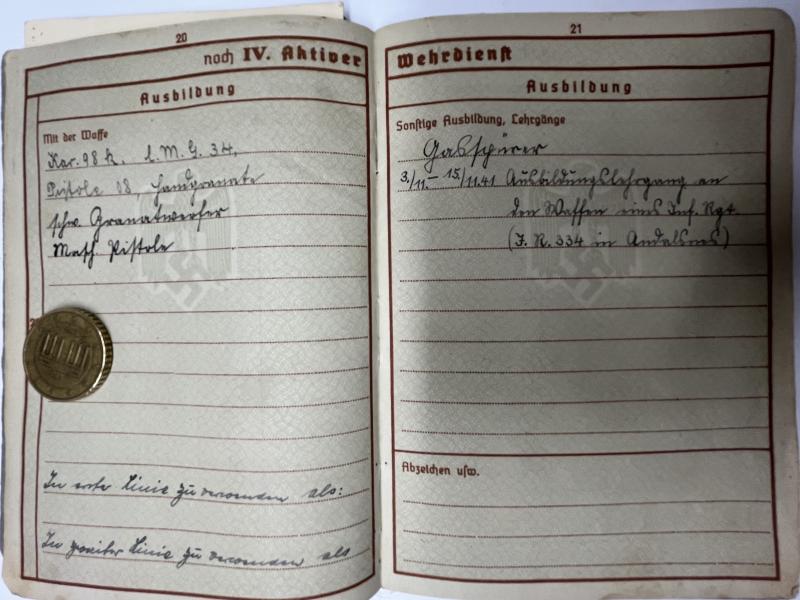 20
noch IV. Aktiver
Ausbildung
Mit der Waffe
Kar. 98 k. l. M. G. 34,
Pistole 08 Handgranate
schw. Granatwerfer
Masch. Pistole
In erste Linie zu verwenden als:
In zweiter Linie zu verwenden als
21
Wehrdienst
Ausbildung
Sonstige Ausbildung, Lehrgänge
Gasspürer
3./11. – 15/11.41 Ausbildungslehrgang an
den Waffen eines Inf. Rgt.
(J. R. 334 in Andalsnes)
Abzeichen usw.